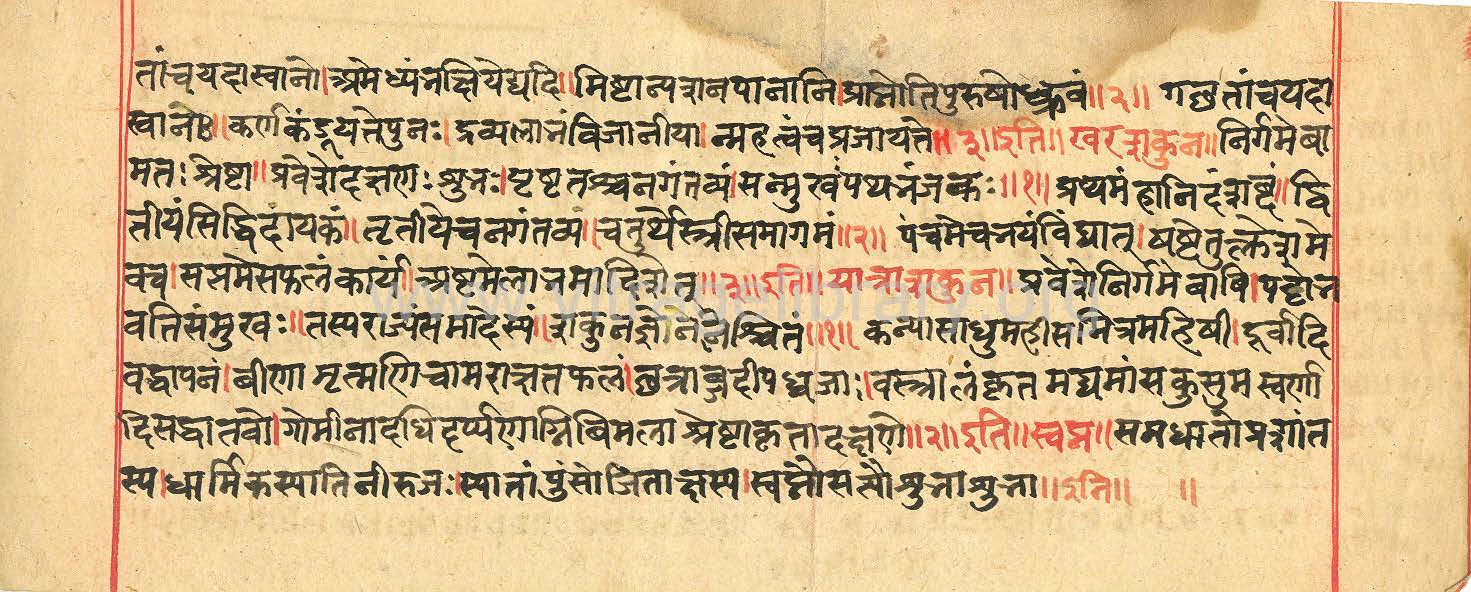 तांचयदास्वानो।अमेध्यंभक्षियेद्यदि॥मिष्टान्यशनपानानि।प्राप्नोतिपुरुषोध्रुवं॥२॥ गछतांचयदा
स्वानो॥कर्णकंडूयतेपुनः।द्रव्यलाभंविजानीया।न्महत्वंचप्रजायते॥३॥इति॥खरशकुन॥निर्गमेवा
मतःश्रेष्टा॥प्रवेशेदक्षणःशुभः।पृष्टतश्चनगंतव्यं।सन्मुखंपथभंजकः॥१॥प्रथमंहानिदंशब्दं॥द्वि
तीयंसिद्धिदायकं॥तृतीयेचनगंतव्यं।चतुर्थेस्त्रीसमागमं॥२॥ पंचमेचभयंविंद्यात्।षष्टेतु
वच।सप्तमेसफलंकार्यं।अष्टमेलाभमादिशेत्॥३॥इति॥यात्राशकुन॥प्रवेशेनिर्गमेवापि।
वतिसंमुखः॥तस्यराज्यसमादेस्यं॥शकुनज्ञानिनैश्चितं॥१॥ कन्यासाधुमहीसमित्रमहिषी।दूर्वादि
वर्द्धापनं।वीणामृत्मणिचामराक्षतफलं।छत्राब्जदीपध्वजाः।वस्त्रालंकृतमद्यमांसकुसुमस्वर्णा
दिसद्धातवो।गोमीनादधिदर्प्पणाग्निविमलाश्रेष्टाकृतादक्षणे॥२॥इति॥स्वप्न॥समधातोप्रशांत
स्य।धार्मिकस्यातिनीरुजः।स्यातांपुंसोजिताक्षस्य।स्वप्नौसत्यौशुभाशुभा॥इति॥ ॥
www.vjlibrary.org